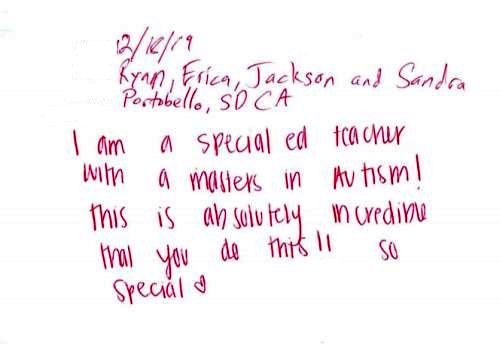 12/12/19
Ryan, Erica, Jackson and Sandra
Portobello, SD CA
I am a special ed teacher
with a masters in Autism!
this is absolutely incredible
that you do this!! so
special